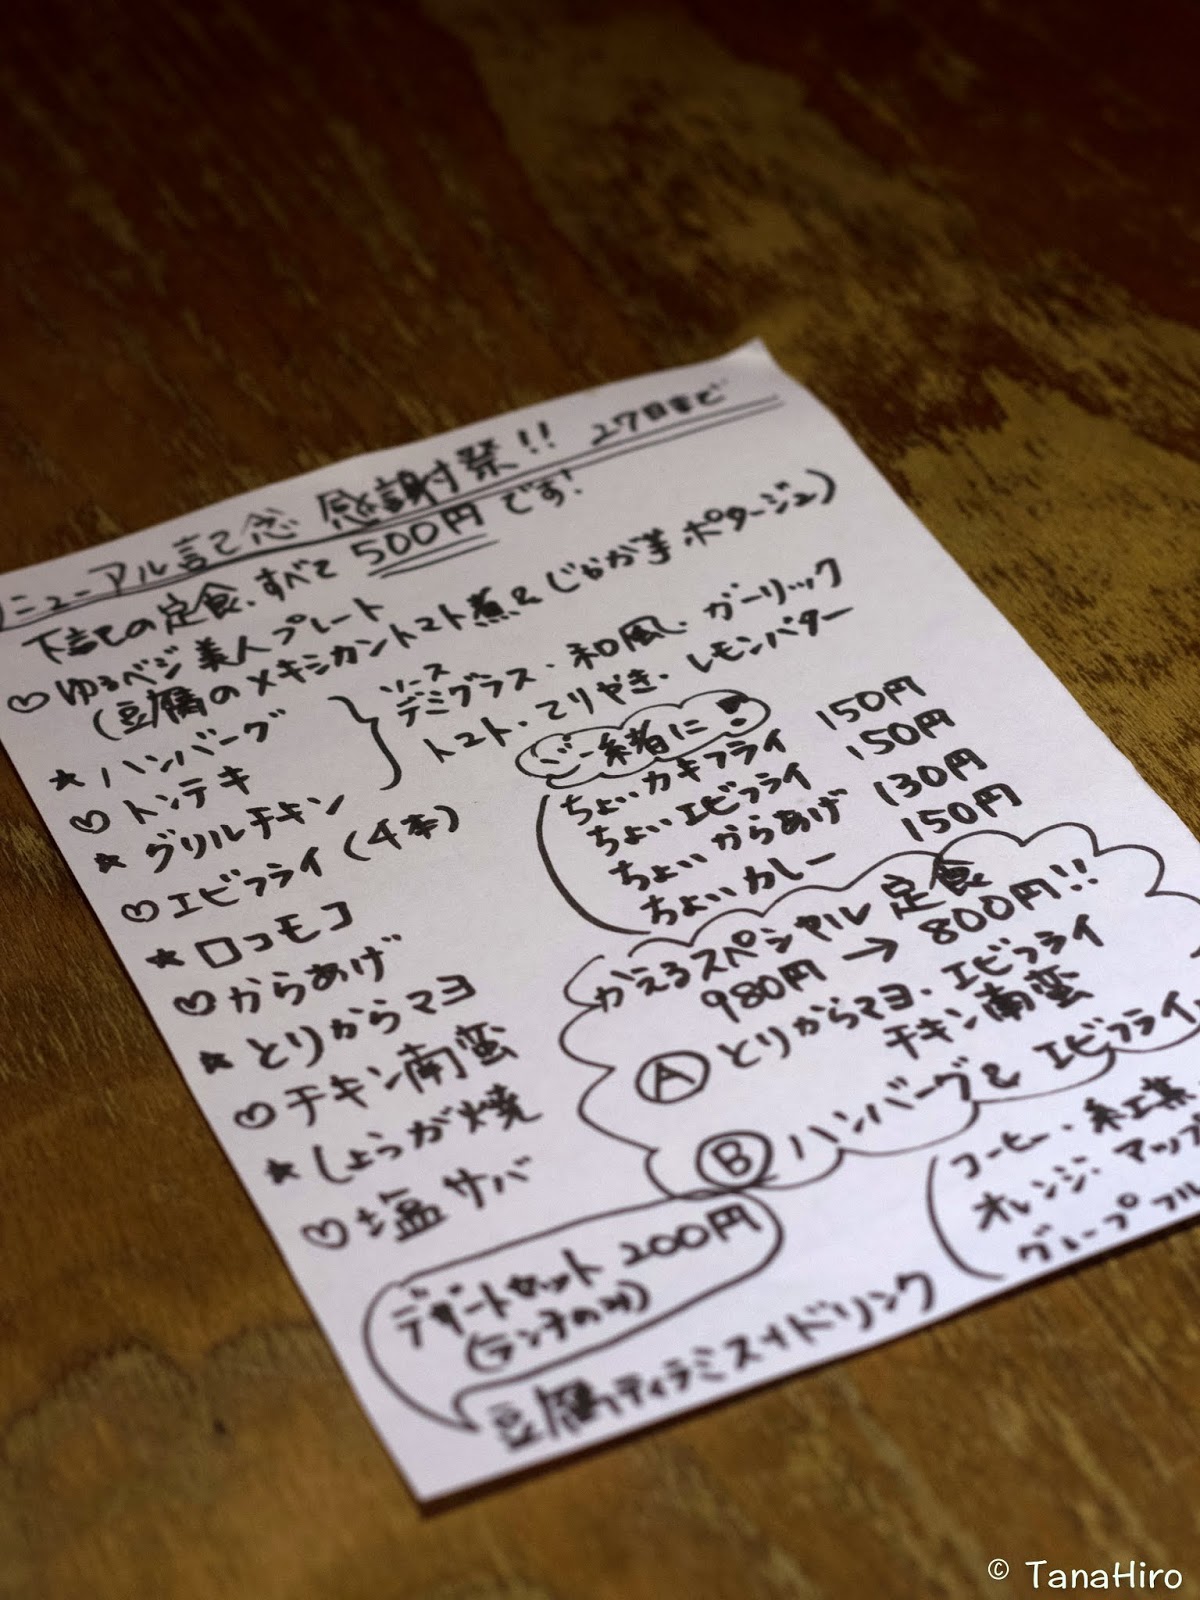 リニューアル記念 感謝祭!! 27日まで
下記の定食、すべて 500円 です!
♡ ゆるベジ 美人プレート
(豆腐のメキシカントマト煮 & じゃが芋ポタージュ)
★ ハンバーグ
♡ トンテキ
★ グリルチキン
ソース
デミグラス・和風・ガーリック
トマト・てりやき・レモンバター
♡ エビフライ (4本)
★ ロコモコ
♡ からあげ
★ とりからマヨ
♡ チキン南蛮
★ しょうが焼
♡ 塩サバ
ご一緒に!
ちょいカキフライ 150円
ちょいエビフライ 150円
ちょいからあげ 130円
ちょいカレー 150円
かえるスペシャル定食
980円 → 800円!!
Ⓐ とりからマヨ・エビフライ
チキン南蛮
Ⓑ ハンバーグ & エビフライ
デザートセット 200円
(ランチのみ)
豆腐ティラミス+ドリンク
コーヒー・紅茶
オレンジ・アップ
グレープフル
© TanaHiro